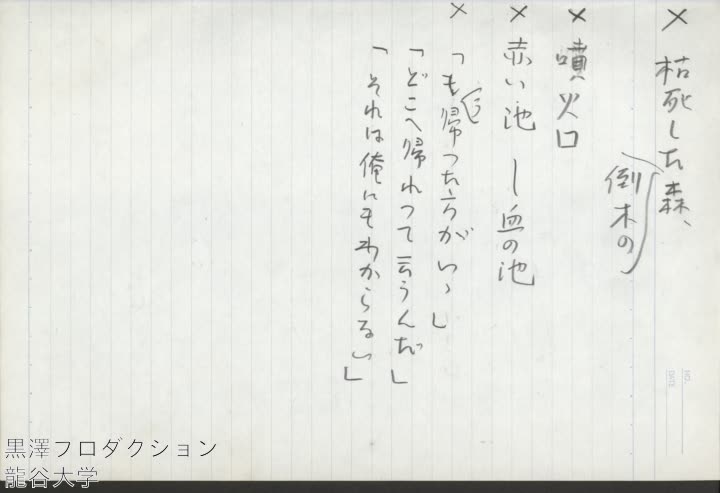 × 枯死した森、
(倒木の)
× 噴火口
× 赤い池 ー 血の池
×
「もう帰つた方がいゝ」
「どこへ帰れつて云うんだ」
「それは俺にもわからない」
NO.
DATE
黒澤プロダクション
龍谷大学